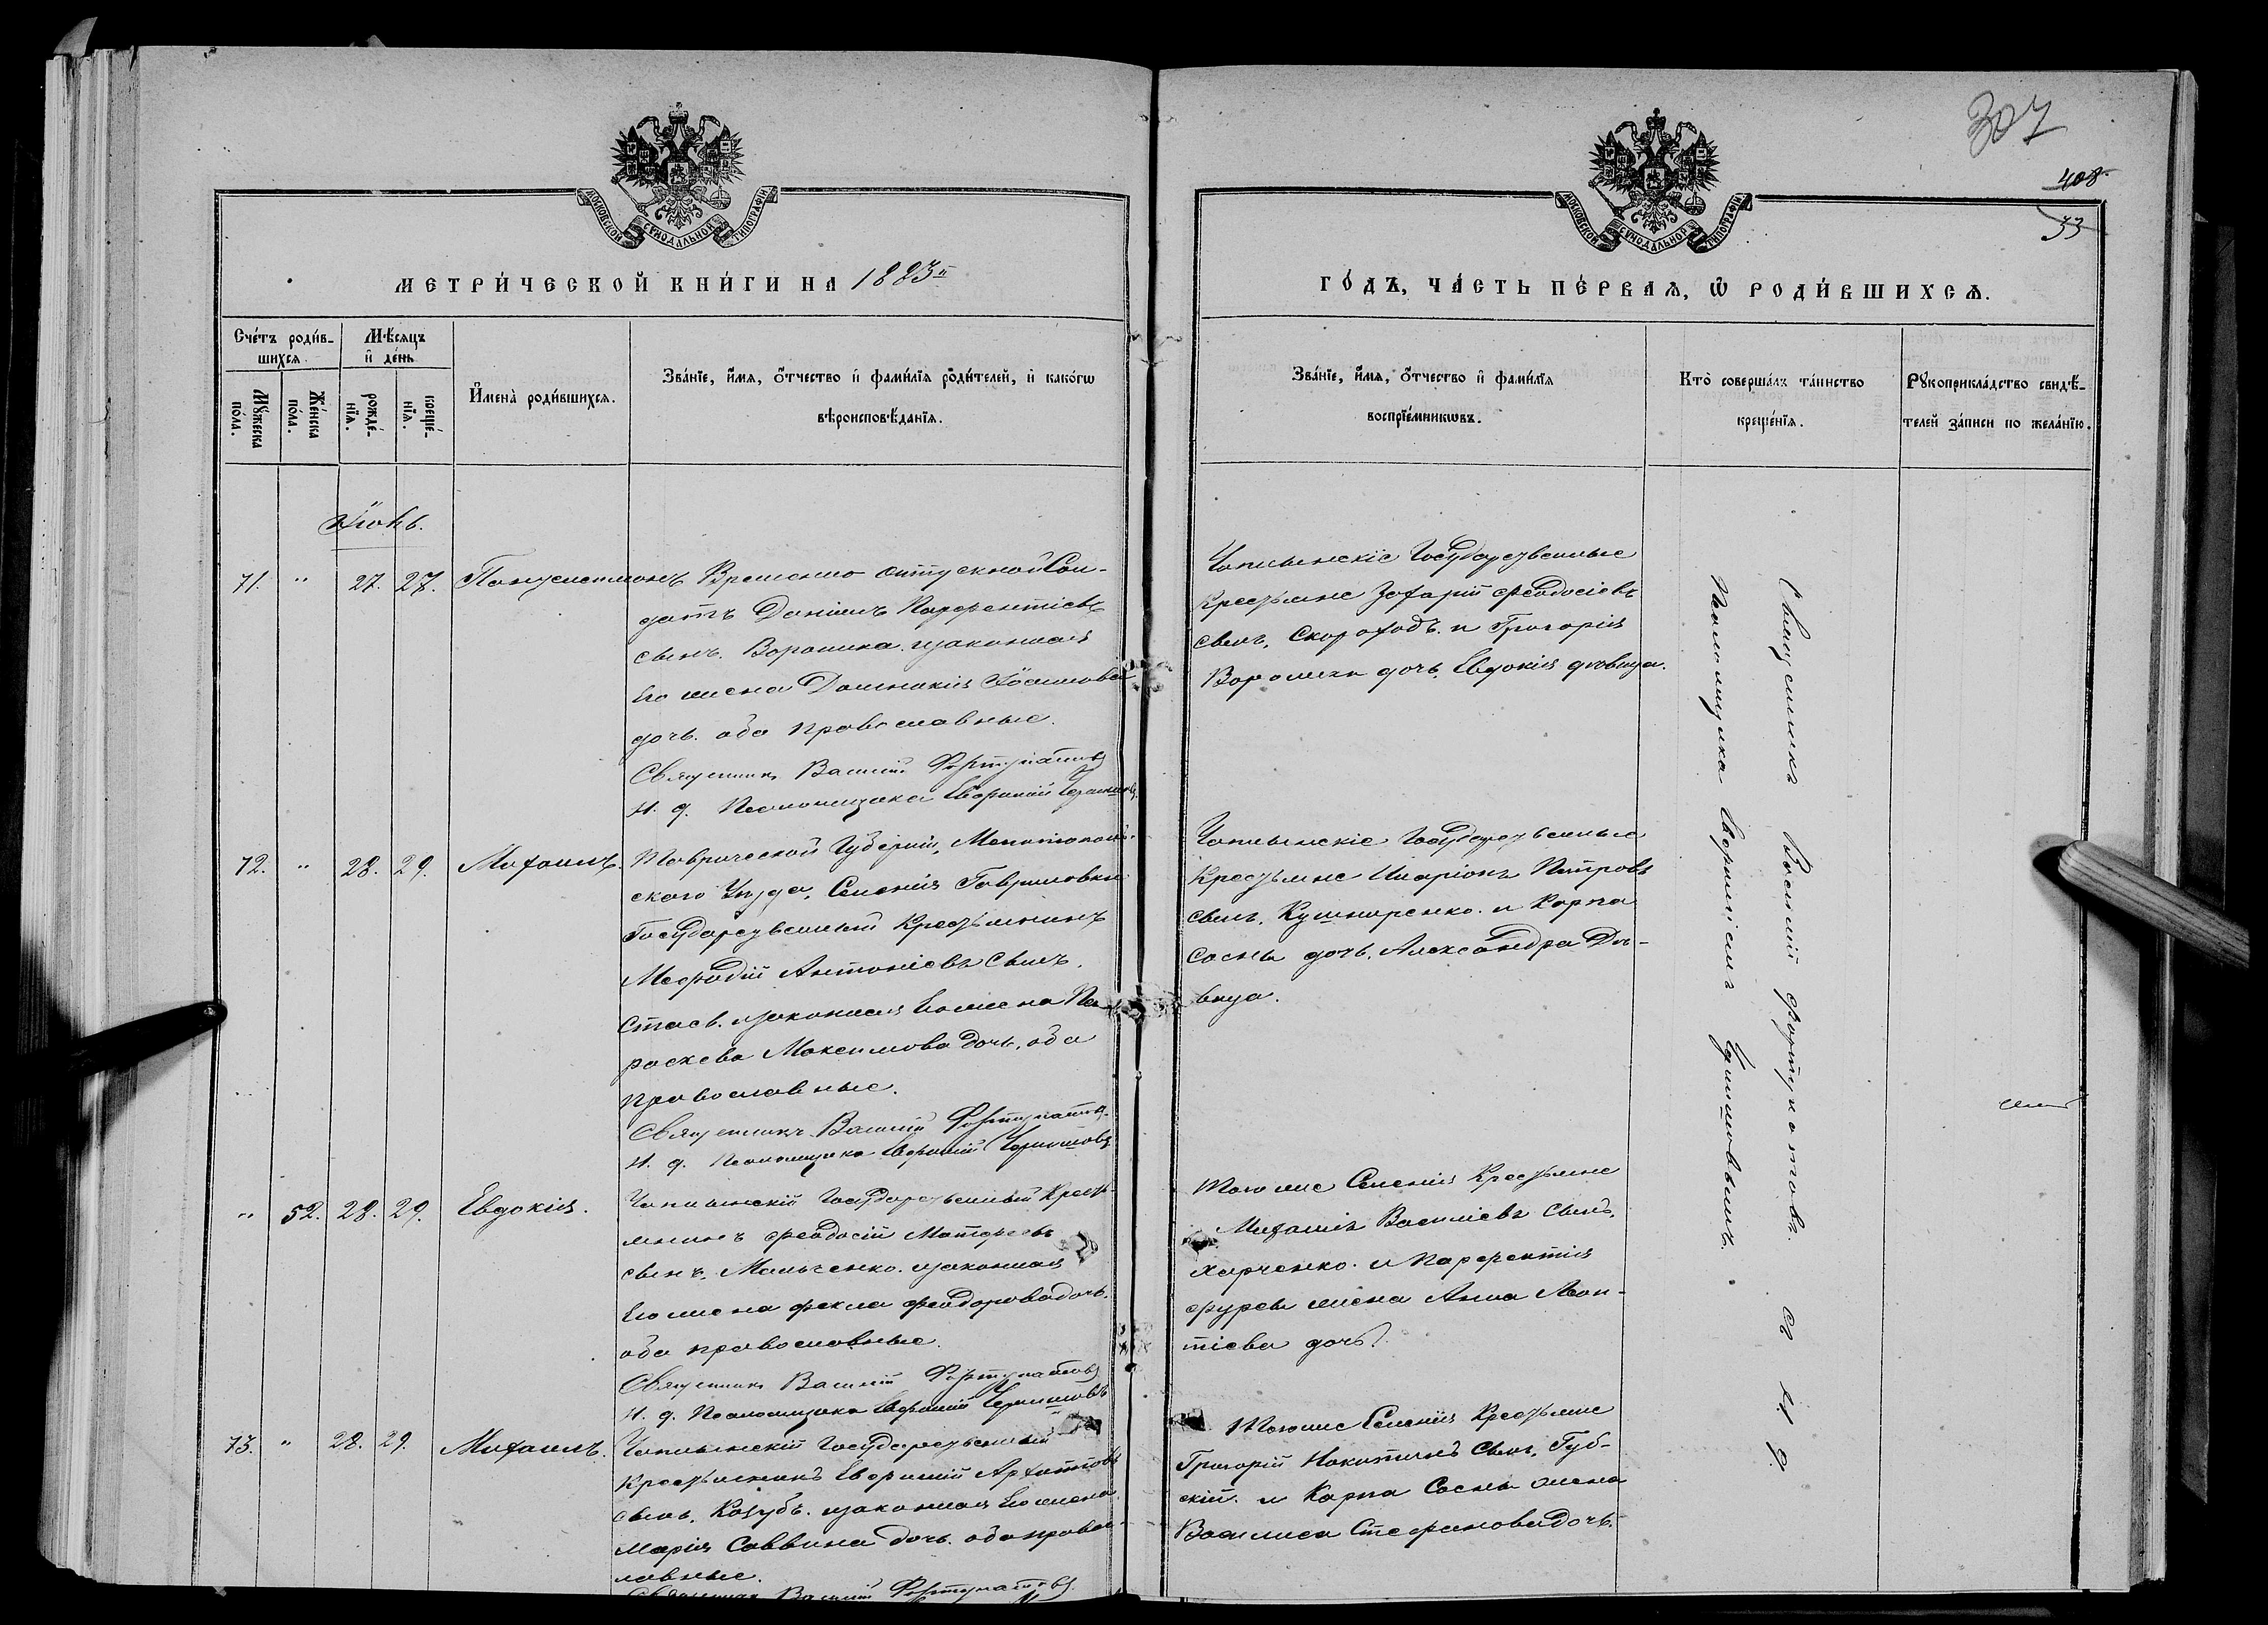 МОСКОВСКОЙ СѴНОДАЛЬНОЙ ТИПОГРАФІИ
МЕТРИ́ЧЕСКОЙ КНИ́ГИ НА 1883й
Сче́тъ роди́в-
шихся.
Мѣ́сяцъ
и҆ де́нь
Мꙋ́жеска
по́ла.
Же́нска
по́ла.
рожде́-
нїѧ.
креще́-
нїѧ.
И҆мена̀ роди́вшихсѧ.
Зва́нїе, и҆́мѧ, ѻ҆́тчество и҆ фами́лїѧ роди́телей, и҆ како́гѡ
вѣроисповѣ́данїѧ.
Іюнь.
71. " 27. 27. Пантелеимонъ Временно отпускной Сол-
датъ Даніилъ Парфентіевъ
сынъ. Воронина. и законная
Его жена Домникія Іоаннова
дочь. оба православные.
Священникъ Василій Фортунатовъ
И. д. Псаломщика Евфимій Чернышовъ.
72. " 28. 29. Михаилъ. Таврической Губерніи, Мелитополь-
скаго Уѣзда, Селенія Гавриловки
Государственный Крестьянинъ
Мефодій Антоніевъ Сынъ.
Стасъ. и законная Его жена Па-
раскева Максимова дочь. оба
православные.
Священникъ Василій Фортунатовъ.
И. д. Псаломщика Евфимій Чернышовъ
" 52. 28. 29. Евдокія. Чаплынскій Государственный Кресть-
янинъ Феодосій Матфеевъ
сынъ. Мальченко. и законная
Его жена Фекла Феодорова дочь.
оба православные.
Священникъ Василій Фортунатовъ
И. д. Псаломщика Евфимій Чернышовъ
73. " 28. 29. Михаилъ. Чаплынскій Государственный
Крестьянинъ Евфимій Архиповъ
сынъ. Козубъ. и законная Его жена
Марія Саввина дочь. оба право-
лавные.
Священникъ Василій Фортунатовъ
307
408
33
МОСКОВСКОЙ СѴНОДАЛЬНОЙ ТИПОГРАФІИ
ГО́ДЪ, ЧА́СТЬ ПЕ́РВАѦ, Ѡ҆ РОДИ́ВШИХСѦ.
Зва́нїе, и҆́мѧ, ѻ҆́тчество и҆ фами́лїѧ
воспрїе́мникѡвъ.
Кто̀ соверша́лъ та́инство
креще́нїѧ.
Рꙋкоприкла́дство свидѣ́-
телей за́писи по жела́нїю.
Чаплынскіе Государственные
Крестьяне Захарій Феодосіевъ
сынъ, Скороходъ. и Григорія
Воронина дочь, Евдокія дѣвица.
Чаплынскіе Государственные
Крестьяне Иларіонъ Петровъ
сынъ, Кушниренко. и Карпа
Сосны дочь, Александра Дѣ-
вица.
Тогоже Селенія Крестьяне
Михаилъ Василіевъ Сынъ,
Харченко. и Парфентія
Фурсы жена Анна Леон-
тіева дочь.
Тогоже Селенія Крестьяне
Григорій Никитинъ Сынъ, Губ-
скій. и Карпа Сосны жена
Василиса Стефанова дочь.
Священникъ Василій Фортунатовъ. съ И. д.
Псаломщика Евфиміемъ Чернышовымъ.